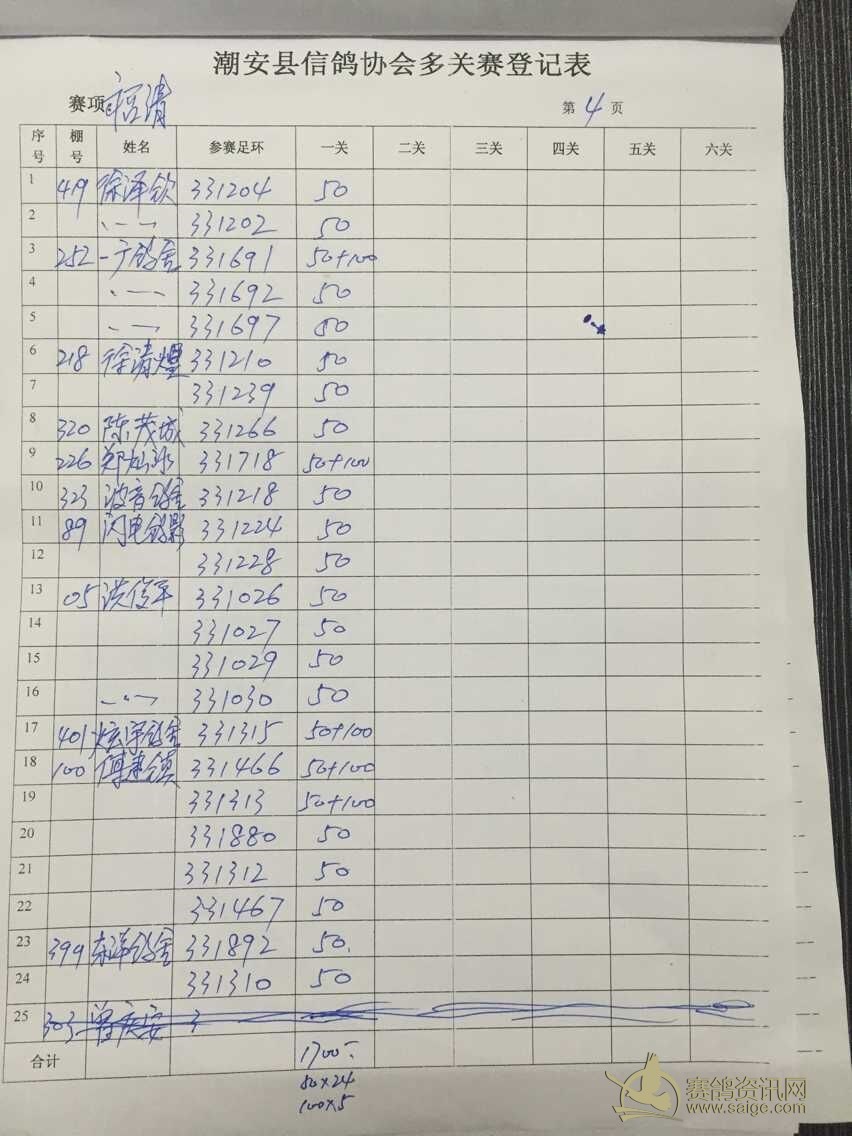 潮安县信鸽协会多关赛登记表
赛项:福清 第4页
序号 棚号 姓名 参赛足环 一关 二关 三关 四关 五关 六关
1 419 徐泽钦 331204 50
2 331202 50
3 252 一于鸽舍 331691 50+100
4 331692 50
5 331697 50
6 218 徐清煌 331210 50
7 331239 50
8 320 陈茂城 331266 50
9 226 郑灿冰 331718 50+100
10 323 波音鸽舍 331218 50
11 89 闪电鸽影 331224 50
12 331228 50
13 05 洪俊平 331026 50
14 331027 50
15 331029 50
16 331030 50
17 401 炫宇鸽舍 331315 50+100
18 100 傅建镇 331466 50+100
19 331313 50+100
20 331880 50
21 331312 50
22 331467 50
23 399 东洋鸽舍 331892 50
24 331310 50
25 303 曾庆安 3
合计 1700
50×24
100×5
赛鸽资讯网
www.saige.com